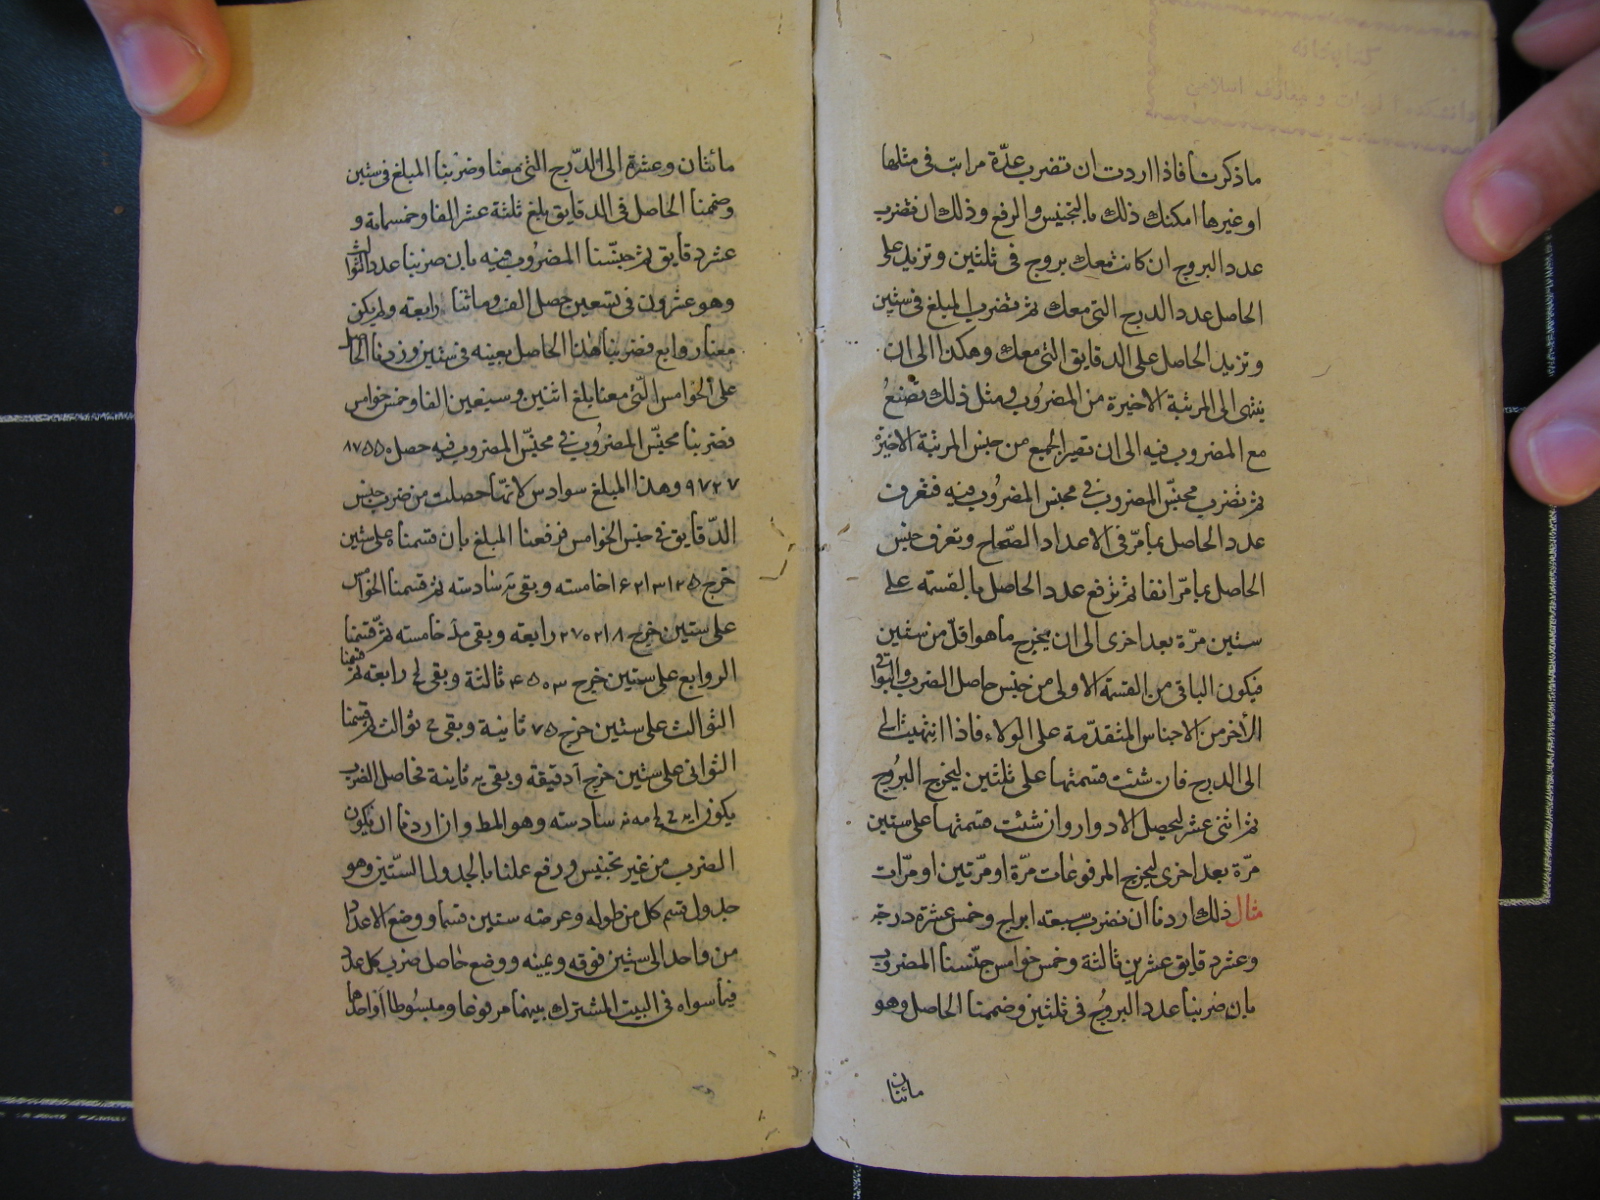 ما ذكرنا فاذا اردت ان تضرب عدّة مرات في مثلها
او غيرها امكنك ذلك بالتجنيس والرفع وذلك ان تضرب
عدد البروج ان كانت معك بروج في ثلثين وتزيد على
الحاصل عدد الدرج التى معك ثم تضرب المبلغ في ستين
وتزيد الحاصل على الدقايق التى معك وهكذا الى ان
ينتهى الى المرتبة الاخيرة من المضروب ومثل ذلك تصنع
مع المضروب فيه الى ان تصير الجميع من جنس المرتبة الاخيرة
ثم تضرب مجنّس المضروب في مجنس المضروب فيه فتعرف
عدد الحاصل بما مرّ في الاعداد الصّحاح وتعرف جنس
الحاصل بما مرّ انفا ثم ترفع عدد الحاصل بالقسمة على
ستين مرّة بعد اخرى الى ان يخرج ما هو اقلّ من ستين
فيكون الباقى من القسمة الاولى من جنس حاصل الضرب والبواقى
الأخر من الاجناس المتقدّمة على الولاء فاذا انتهيت
الى الدرج فان شئت قسمتها على ثلثين ليخرج البروج
ثم اثنى عشر ليحصل الادوار وان شئت قسمتها على ستين
مرّة بعد اخرى ليخرج المرفوعات مرّة او مرّتين او مرّات
مثال ذلك اردنا ان نضرب سبعة ابراج وخمس عشرة درجة
وعشر دقايق عشرين ثالثة وخمس خوامس جنّسنا المضروب
بان ضربنا عدد البروج في ثلثين وضممنا الحاصل وهو
مائتان
مائتان وعشرة الى الدّرج التى معنا وضربنا المبلغ في ستين
وضممنا الحاصل في الدقايق بلغ ثلثة عشر الفا وخمسمائة و
عشر دقايق ثم جنّسنا المضروب فيه بان ضربنا عدد الثوالث
وهو عشرون في ستين حصل الف ومائتا رابعة ولم يكن
معنا روابع فضربنا هذا الحاصل بعينه في ستين وزدنا الحاصل
على الخوامس الّتى معنا بلغ اثنين وسبعين الفا وخمس خوامس
فضربنا مجنّس المضروب في مجنّس المضروب فيه حصل ٨٧٥٥٠
٩٧٢٧ وهذا المبلغ سوادس لانّها حصلت من ضرب جنس
الدّقايق في جنس الخوامس فرفعنا المبلغ بان قسمناه على ستين
خرج خامسة وبقى سادسة ثم قسمنا الخوامس
على ستين خرج رابعة وبقى خامسة ثمّ قسمنا
الروابع على ستين خرج ثالثة وبقى رابعة ثم قسمنا
الثوالث على ستين خرج ٧٥ ثانية وبقى ثوالث ثم قسمنا
الثوانى على ستين خرج آ دقيقة وبقى يه ثانية فحاصل الضرب
يكون سادسة وهو المط وان اردنا ان يكون
الضرب من غير تجنيس ورفع عملنا بالجدول الستّين وهو
جدول قسم كل من طوله وعرضه ستين قسما ووضع الاعداد
من واحد الى ستين فوقه ويمينه ووضع حاصل ضرب كل عدد
فيما سواه في البيت المشترك بينهما مرفوعا ومبسوطا